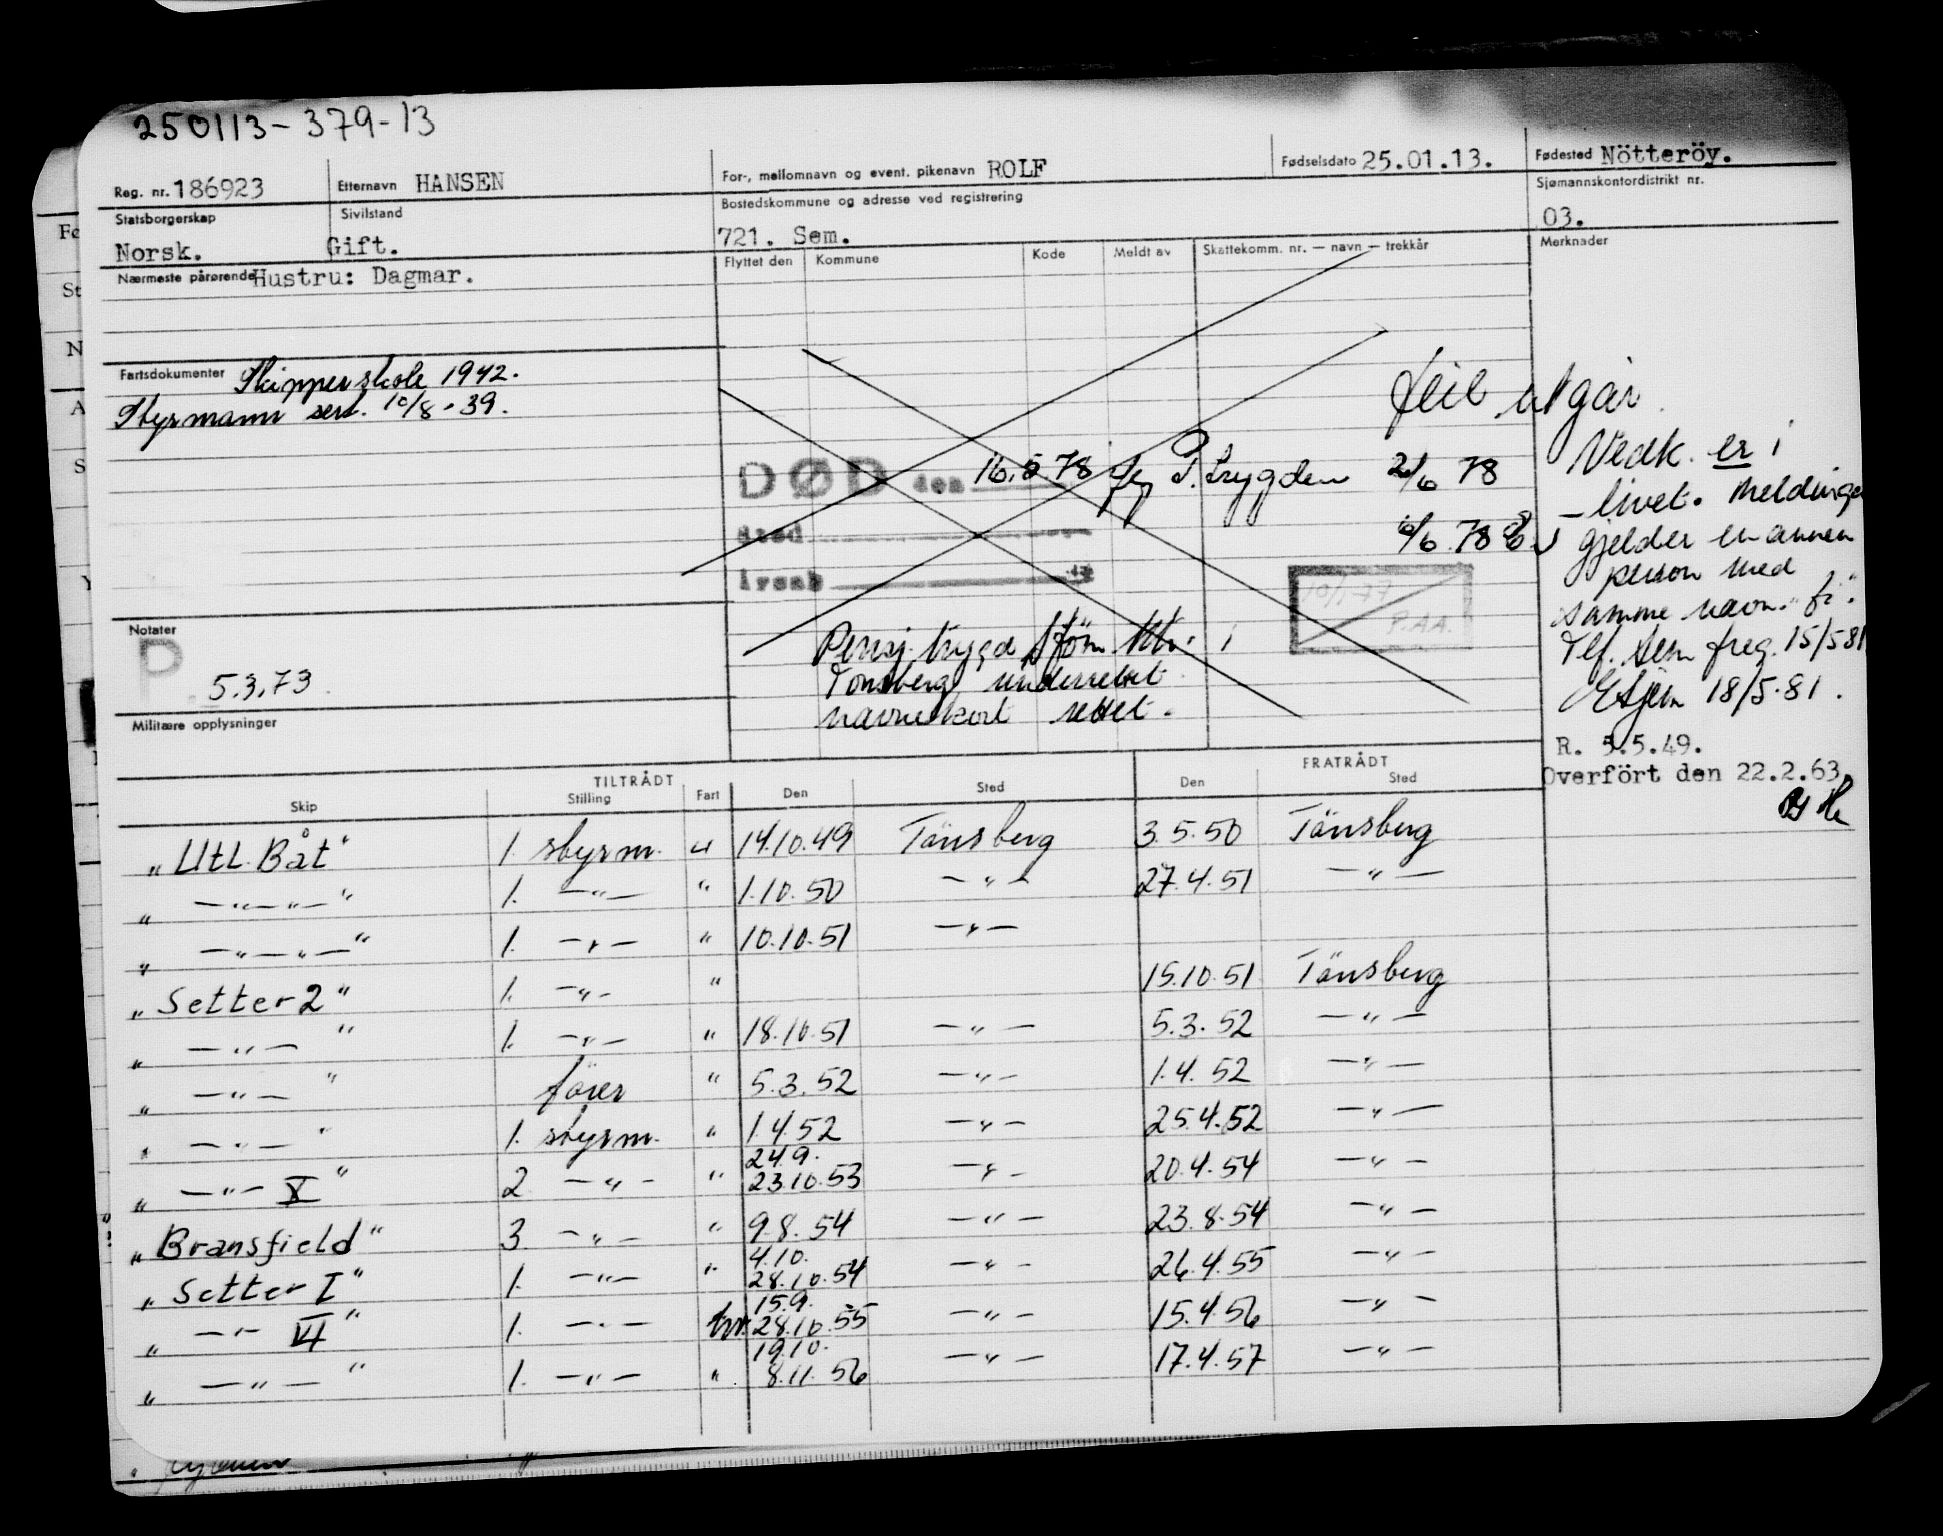 250113-379-13
Reg. nr. 186923 Etternavn HANSEN For-, mellomnavn og event. pikenavn ROLF Fødselsdato 25.01.13. Fødested Nötteröy.
Statsborgerskap Norsk. Sivilstand Gift. Bostedskommune og adresse ved registrering 721. Sem. Sjømannskontordistrikt nr. 03.
Nærmeste pårørende Hustru: Dagmar. Flyttet den Kommune Kode Meldt av Skattekomm. nr. — navn — trekkår Merknader
Fartsdokumenter Skipperskole 1942.
Styrmann sert. 10/8-39.
feil utgår.
DØD den 16.5.78 P. Trygden 2/6 78
Sted
Årsak
6/6.78
10/1-77
P.AA.
Pensj.trygd f/sjøm. i
Tønsberg underrettet
navnekort rettet.
Vedk. er i
livet. Meldingen
gjelder en annen
person med
samme navn.
Tlf. Sem freg. 15/5 81
18/5.81.
R. 5.5.49.
Overfört den 22.2.63
Notater
P 5.3.73
Militære opplysninger
TILTRÅDT FRATRÅDT
Skip Stilling Fart Den Sted Den Sted
"Utl. Båt" 1. styrm. u 14.10.49 Tönsberg 3.5.50 Tönsberg
" —"—"—" 1. —"— " 1.10.50 —"— 27.4.51 —"—
" —"—"—" 1. —"— " 10.10.51 —"—
"Setter 2" 1. —"— " 15.10.51 Tönsberg
" —"— " 1. —"— " 18.10.51 —"— 5.3.52 —"—
" —"— " förer " 5.3.52 —"— 1.4.52 —"—
" —"— " 1. styrm. " 1.4.52 —"— 25.4.52 —"—
24.9.
" —"— X" 2. —"— " 23.10.53 —"— 20.4.54 —"—
"Bransfield" 3. —"— " 9.8.54 —"— 23.8.54 —"—
4.10.
"Setter I" 1. —"— " 28.10.54 —"— 26.4.55 —"—
15.9.
" —"— VI" 1. —"— hv. 28.10.55 —"— 15.4.56 —"—
19.10.
" —"— " 1. —"— " 8.11.56 —"— 17.4.57 —"—